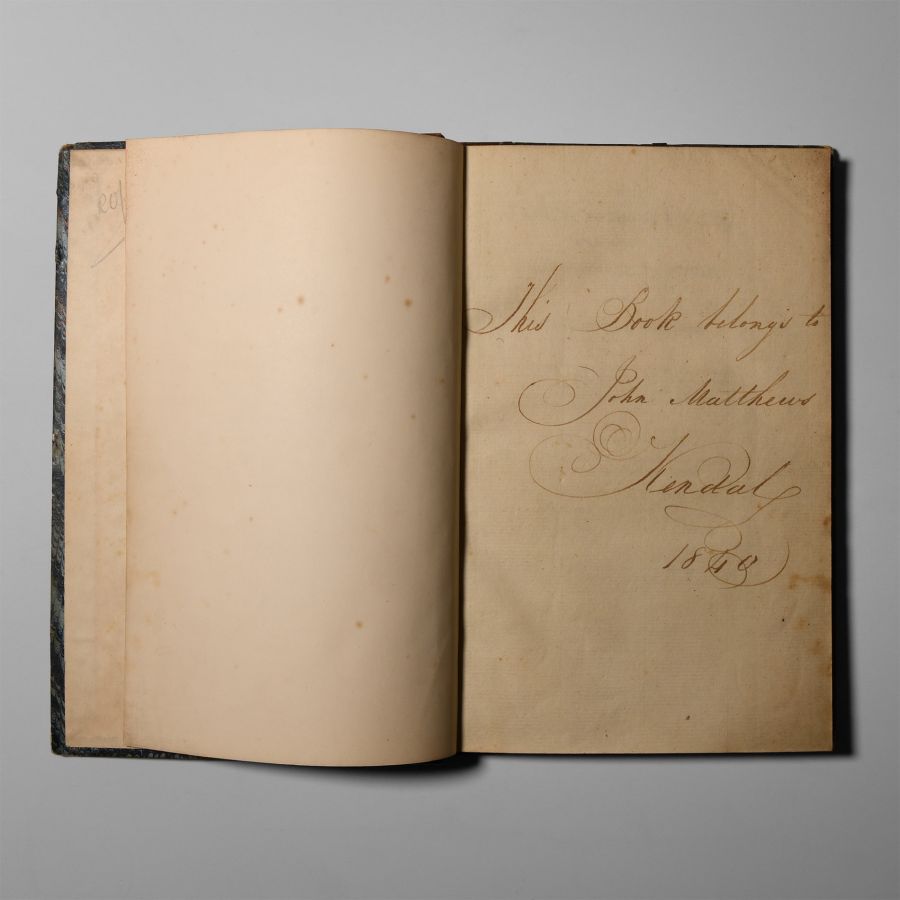 20/
This Book belongs to
John Matthews
Kendal
1840